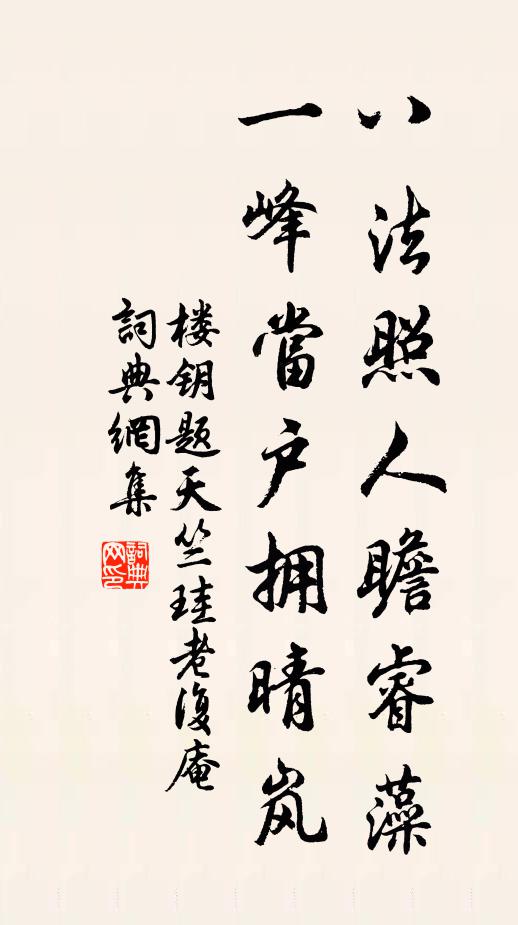 八法照人瞻睿藻
一峰當户拥晴岚
楼钥题天竺珪老復庵
詞典網集
詞典网印